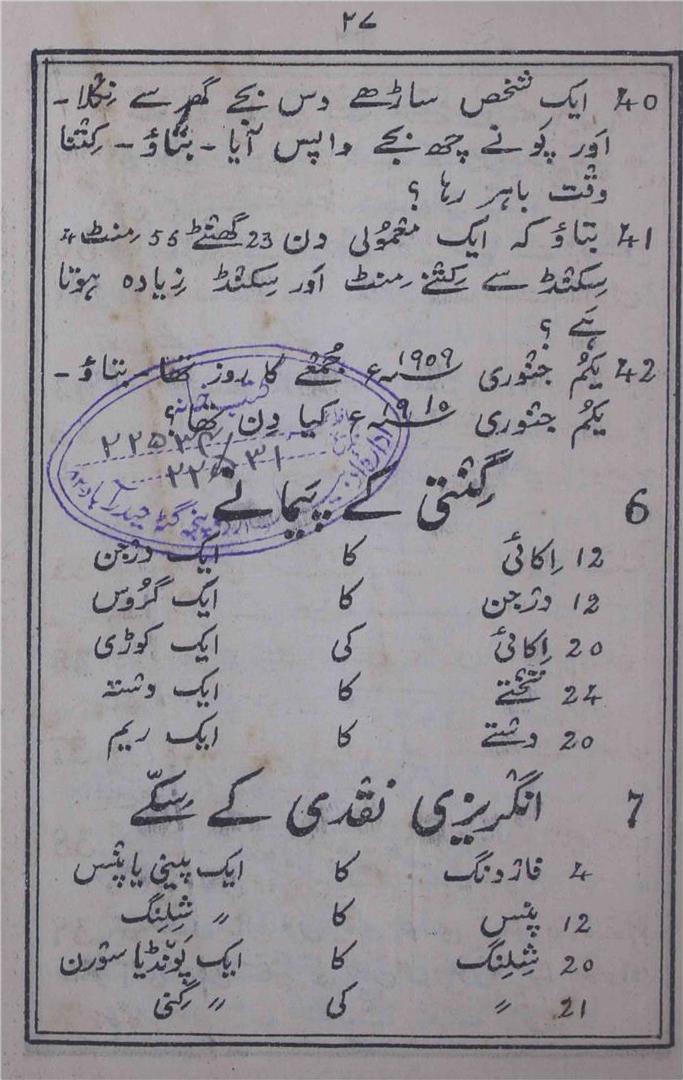 ۲۷
40 ایک شخص ساڑھے دس بجے گھر سے نِکلا۔
اَور پَونے چھ بجے واپس آیا۔ بتاؤ۔ کِتنا
وقت باہر رہا ؟
41 بتاؤ کہ ایک معمُولی دن 23 گھنٹے 56 مِنٹ 4
سِکنڈ سے کِتنے مِنٹ اَور سِکنڈ زِیادہ ہوتا
ہَے ؟
42 یکُم جنوری ۱۹۰۹ء جُمعے کا روز تھا۔ بتاؤ۔
یکُم جنوری ۱۹۱۰ء کیا دِن تھا ؟
کتب خانہ
۲۲۵۳۱
حیدرآباد
6 گِنتی کے پَیمانے
12 اِکائی کا ایک درجن
12 درجن کا ایک گُروس
20 اِکائی کی ایک کوڑی
24 تختے کا ایک دستہ
20 دستے کا ایک ریم
7 انگریزی نقدی کے سِکّے
4 فاردنگ کا ایک پینی یا پنس
12 پنس کا 〃 شِلِنگ
20 شِلِنگ کا ایک پَونڈ یا سورن
21 〃 کی 〃 گِنی